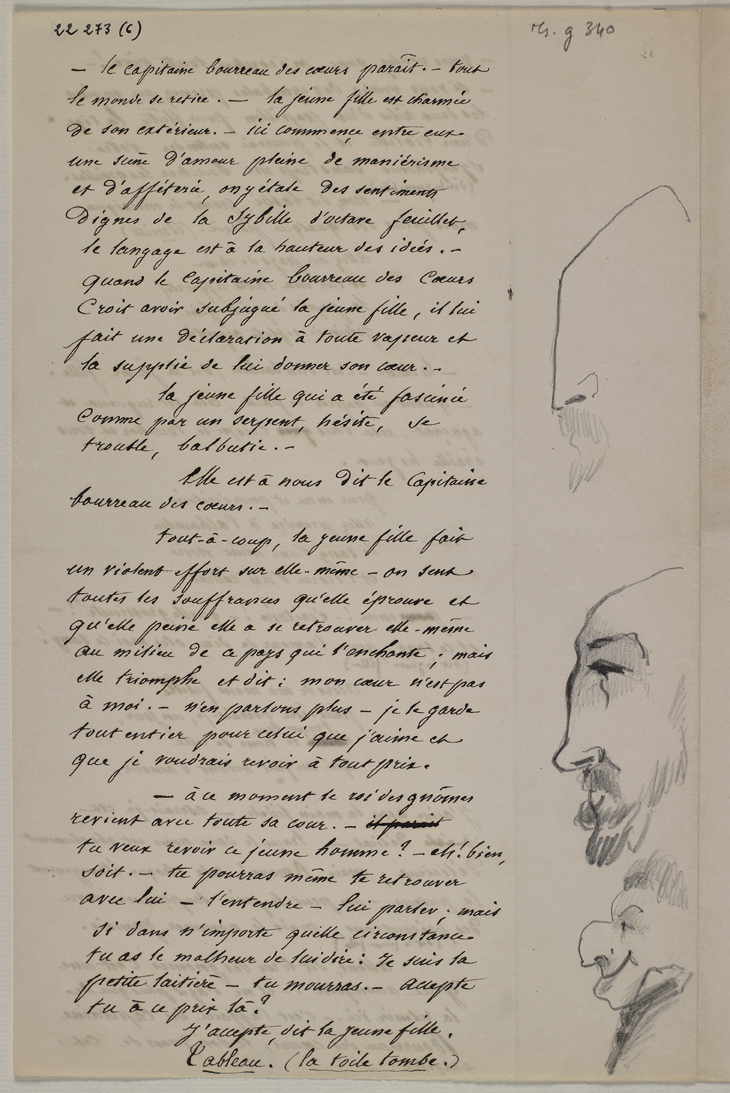 22 273 (6)
Th. g 340
— le capitaine bourreau des cœurs parait. — tout
le monde se retire. — la jeune fille est charmée
de son extérieur. — ici commence entre eux
une scène d'amour pleine de maniérisme
et d'afféterie, on y étale des sentiments
Dignes de la Sybille d'octave feuillet,
le langage est à la hauteur des idées. —
quand le Capitaine bourreau des Cœurs
Croit avoir subjugué la jeune fille, il lui
fait une déclaration à toute vapeur et
la supplie de lui donner son cœur. —
la jeune fille qui a été fascinée
Comme par un serpent, hésite, se
trouble, balbutie. —
Elle est à nous dit le Capitaine
bourreau des cœurs. —
tout-à-coup, la jeune fille fait
un violent effort sur elle-même — on sent
toutes les souffrances qu'elle éprouve et
qu'elle peine elle a se retrouver elle-même
au milieu de ce pays qui l'enchante ; mais
elle triomphe et dit : mon cœur n'est pas
à moi. — n'en parlons plus — je le garde
tout entier pour celui que j'aime et
que je voudrais revoir à tout prix.
— à ce moment le roi des gnômes
revient avec toute sa cour. — il parait
tu veux revoir ce jeune homme ? — eh ! bien,
soit. — tu pourras même te retrouver
avec lui — l'entendre — lui parler ; mais
si dans n'importe quelle circonstance
tu as le malheur de lui dire : Je suis la
petite laitière — tu mourras. — accepte
tu à ce prix là ?
J'accepte, dit la jeune fille.
Tableau. (la toile tombe.)